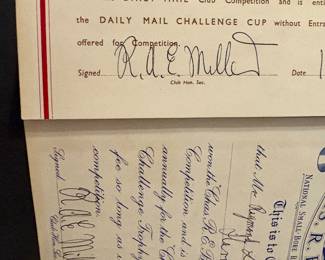 DAILY MAIL Club Competition and is entit
the DAILY MAIL CHALLENGE CUP without Entra
offered for Competition.
Signed R.A.E. Millet Date 1
Club Hon. Sec.
NATIONAL SMALL-BORE R
S. R.
This is to C
that Mr. Raymond L.
won the Chas. R. E. B
Competition and is
annually for the C
Challenge Trophy
fee so long as i
competition.
Signed R A E Mill
Club Hon. Sec